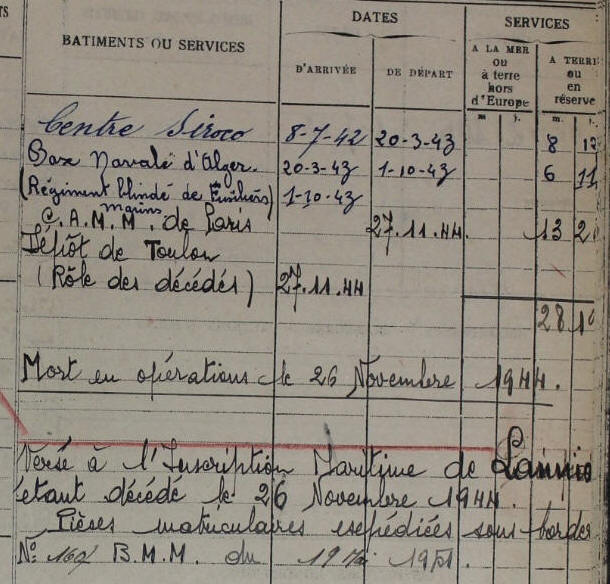 TS
BATIMENTS OU SERVICES
DATES
D'ARRIVÉE
DE DÉPART
SERVICES
A LA MER
ou
à terre
hors
d'Europe
m j.
A TERRE
ou
en
réserve
m. j.
Centre Siroco 8-7-42 20-3-43 8 12
Base Navale d'Alger. 20-3-43 1-10-43 6 11
(Régiment blindé de Fusiliers 1-10-43
marins)
C.A.M.M. de Paris 27.11.44. 13 2
Dépôt de Toulon
(Rôle des décédés) 27.11.44
28 1
Mort en opérations le 26 Novembre 1944.
Versé à l'Inscription Maritime de Lannion
étant décédé le 26 Novembre 1944.
Pièces matriculaires expédiées sous border
N° B.M.M. du 1951.